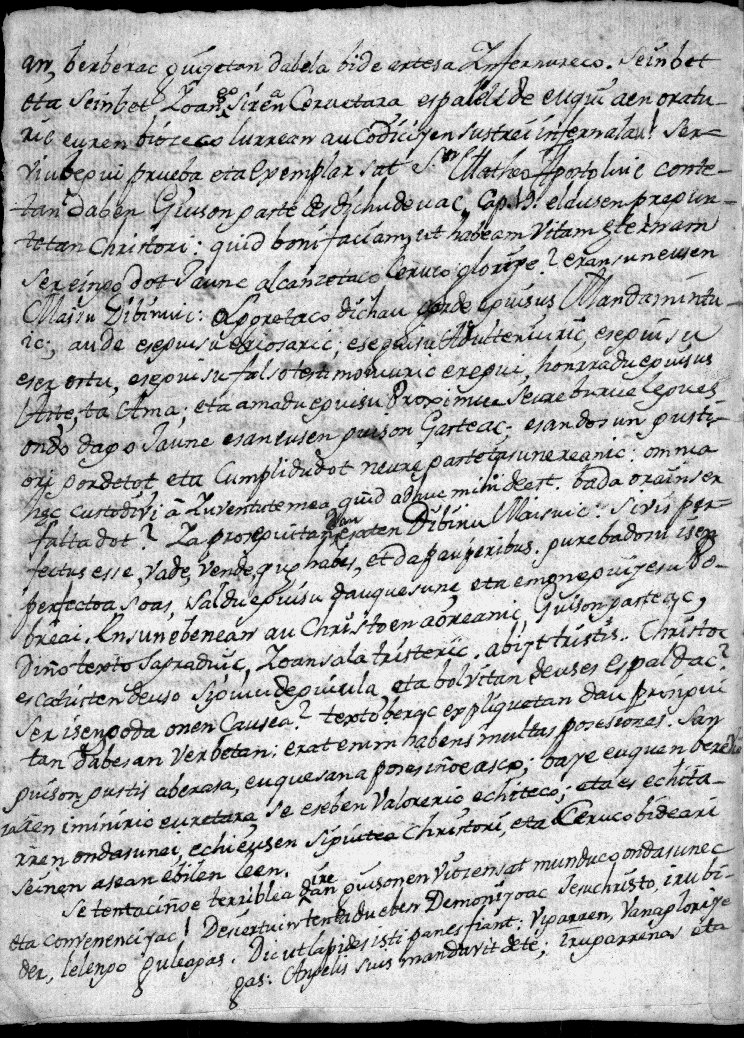 an, berberac guijetan dabela bide artesa Infernureco. Seinbet
eta Seinbet Zoango Sirean Ceructara espalek de euqui aen oratu-
ric euren biozeco lurrean au Codicijen sustrei infernalau! Ser-
viubegui prueba eta exemplarzat Sn Matheo Apostoluic conte-
tan daben Guison parte des dichudevac, Cap. 19. eldusen pregun-
tetan Christori: quid boni faciam, ut habeam Vitam eternam
Ser eingo dot Jaune alcanzetaco Ceruco glorije? eransuneusen
Maisu Dibinuic: a logretaco dichau gorde eguisus Mandamintu-
ic; au de eseguisu eriosaric; eseguisu Adulterijuric, eseguisu
eser ostu, eseguisu falso testimonijuric eregui, honrradueguisus
Aite, ta Ama; eta amadueguisu Proximue Seure burue legues
ondo dago Jaune esan eusen guison Gasteac; esan dosun gusti-
ori gordetot eta Cumplidudot neure gastetasunereanic: omnia
hec custodivi a Iuventute mea, quid adhuc mihi deest. bada orain ser
falta dot? Ta proseguitan dau esaten Dibinu Maisuic: Si vis per-
fectus esse, Vade, Vende, que habes, et da pauperibus. gure badosu isen
perfectoa soas, Saldueguisu daucasune, eta emon eguijesu Po-
breai. Ensunebenean au Christoen aoreanic, Guison gasteac,
Diño texto Sagraduic, Zoansala tristeric. abijt tristis. Christoc
escatuten deuso Sijouu deguiula, eta bolvitan deuses Espaldac?
Ser isengoda onen Causea? texto berac expliquetan dau prinqui
tan dabesan Verbetan: erat enim habens multas posesiones. San
guison gustis aberasa, euquesana posesiñoe asco; baye euquen berenu
zaren iminiric euretara, Se eseben Valoreric echiteco; eta es echita-
rren ondasunei, echieusen Sipuitea Christori, eta Ceruco bideari
Seinen asean ebilen leen.
Se tentaciñoe terriblea dan guisonen Vitzensat munduco ondasunec
eta convenencijac! Desertuin tentadueben Demonijoac Jesuchristo, iru bi-
der, lelengo guleagas. Dic ut lapides isti panes fiant: Vigarren, Vanaglorije
gas: Angelis suis mandavit de te; Irugarrena, eta